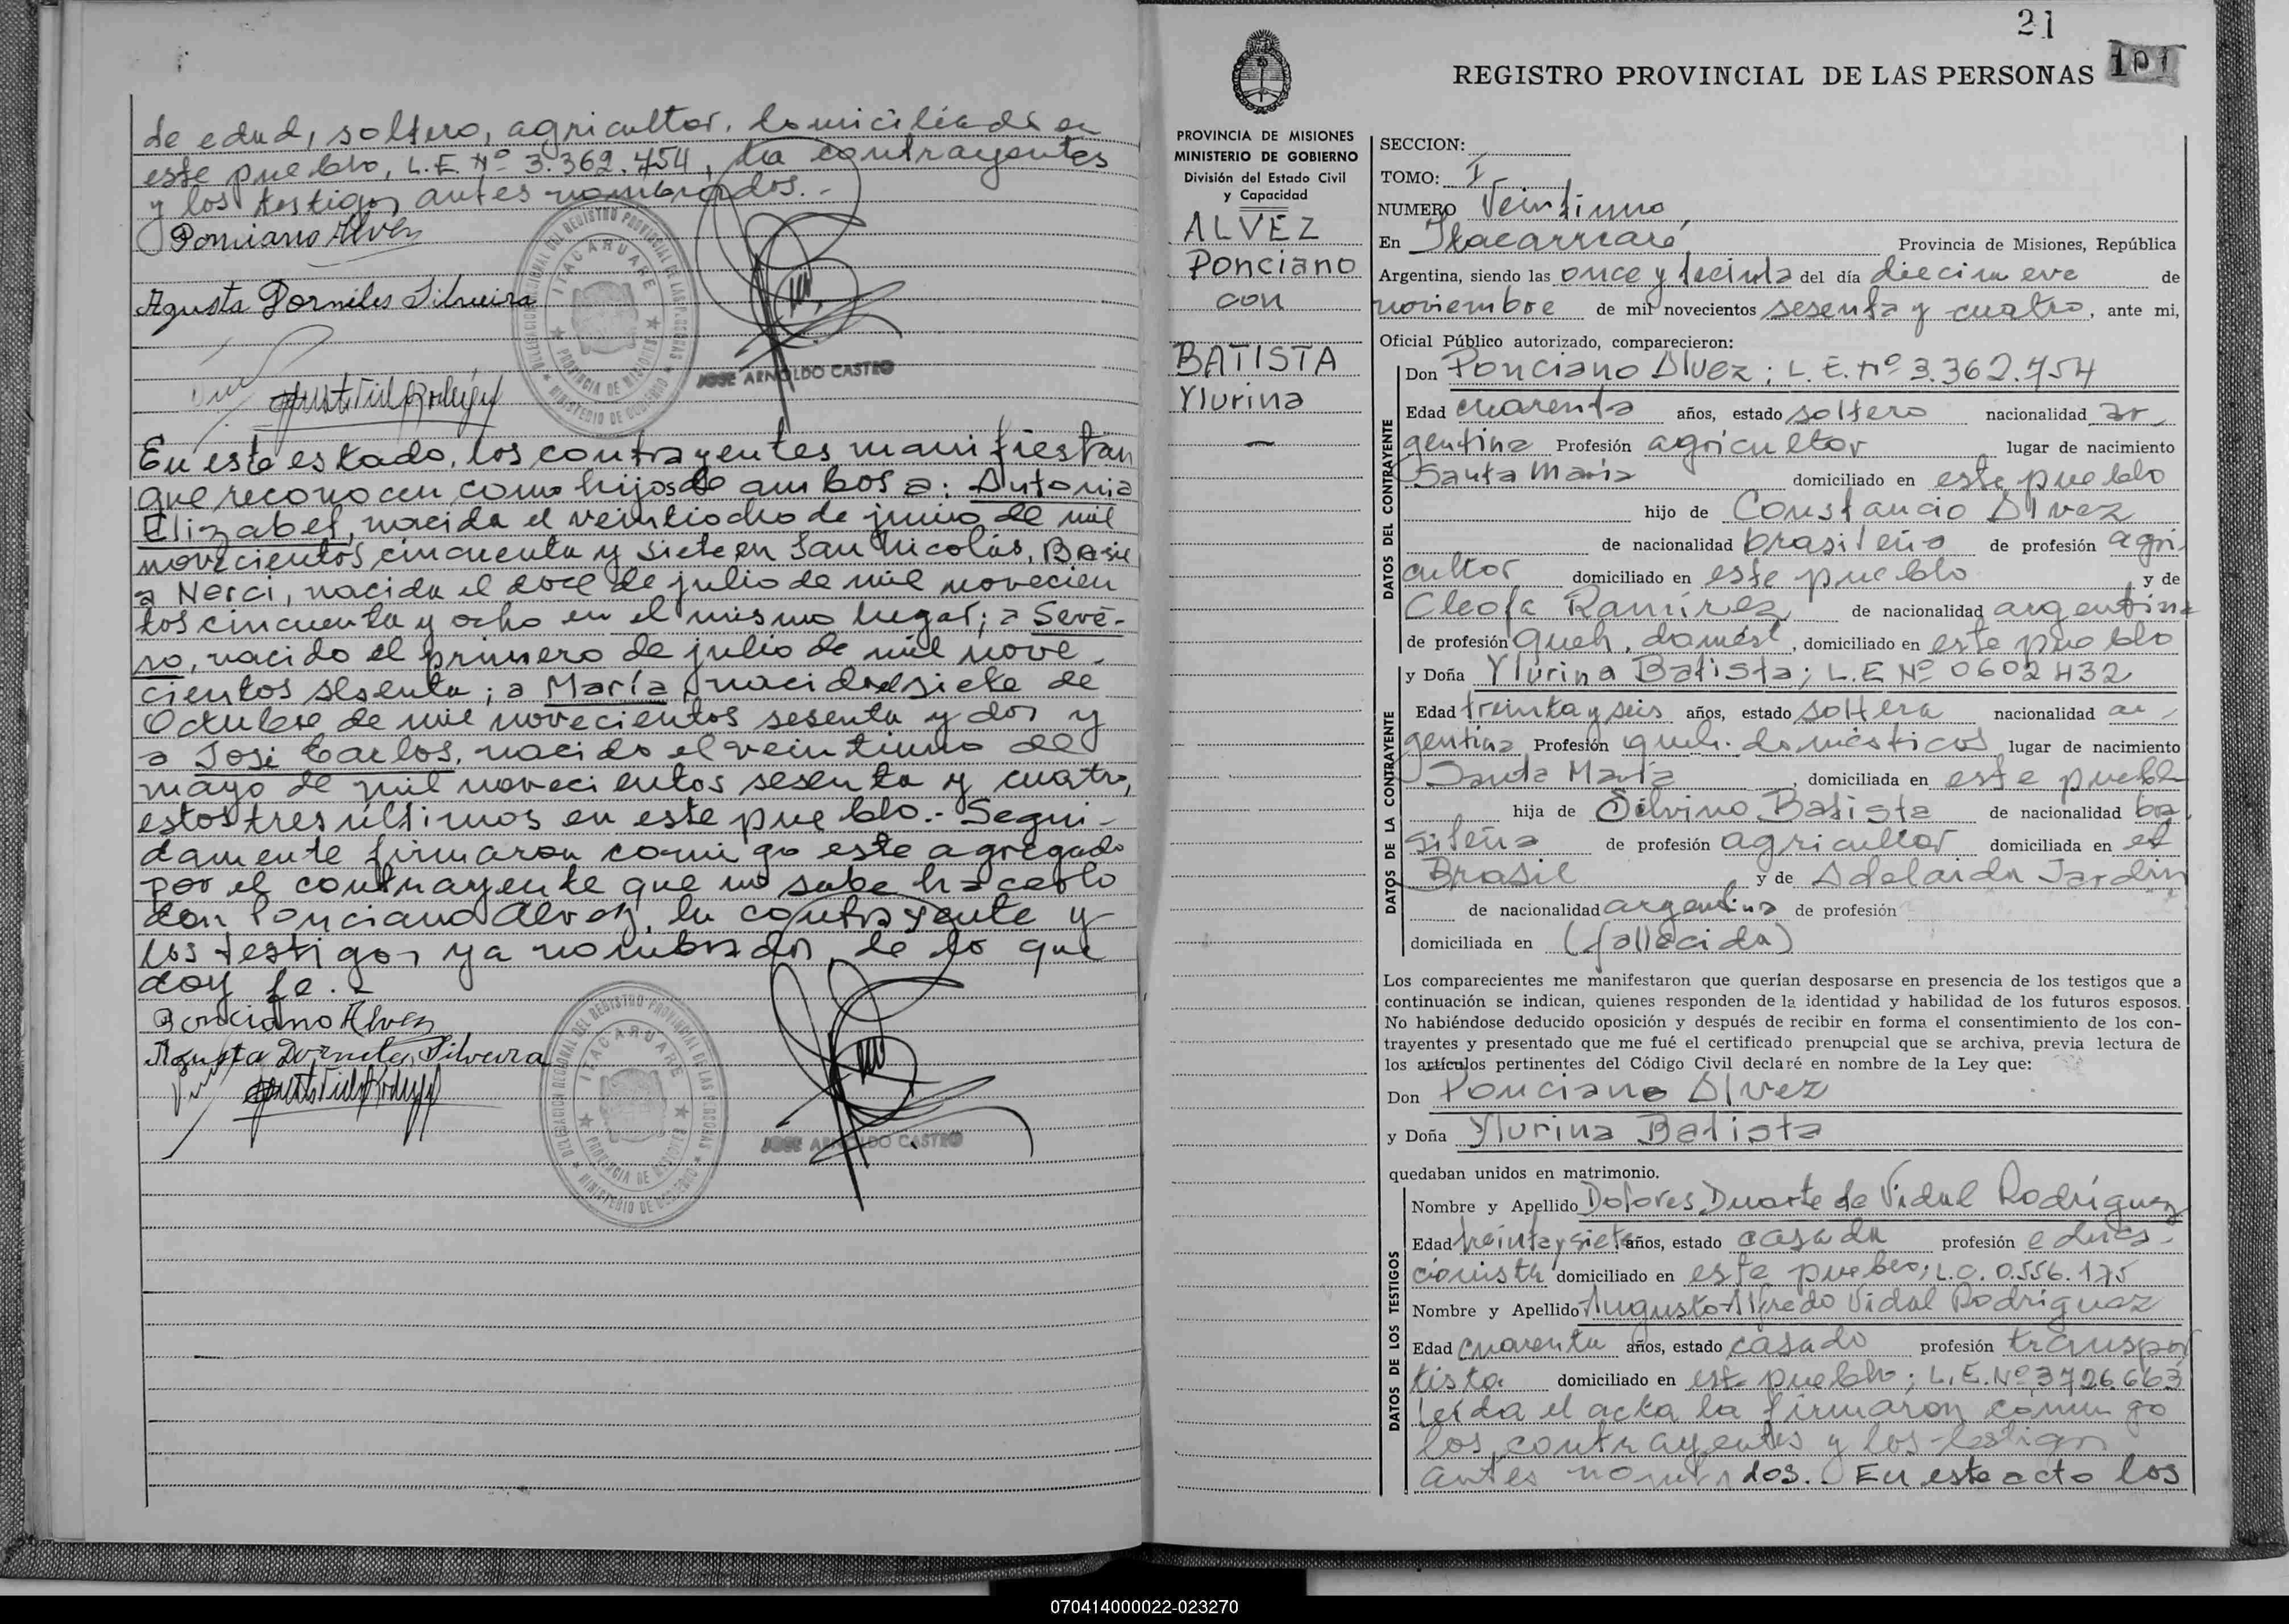 de edad, soltero, agricultor, domiciliado en
este pueblo, L.E. Nº 3.362.454, la contrayentes
y los testigos antes nombrados.-
Ponciano Alvez
Agusta Dorniles Silveira
DELEGACION REGIONAL DEL REGISTRO PROVINCIAL DE LAS PERSONAS
ITACARUARE
PROVINCIA DE MISIONES
MINISTERIO DE GOBIERNO
JOSE ARNOLDO CASTRO
En este estado, los contrayentes manifiestan
que reconocen como hijos de ambos a: Antonia
Elizabet, nacida el veintiocho de junio de mil
novecientos cincuenta y siete en San Nicolás, Brasil
a Nerci, nacida el doce de julio de mil novecien
tos cincuenta y ocho en el mismo lugar; a Seve-
ro, nacido el primero de julio de mil nove
cientos sesenta; a María, nacida el siete de
Octubre de mil novecientos sesenta y dos y
a José Carlos, nacido el veintiuno de
mayo de mil novecientos sesenta y cuatro,
estos tres últimos en este pueblo.- Segui-
damente firmaron comigo este agregado
por el contrayente que no sabe hacerlo
don Ponciano Alvez, la contrayente y
los testigos ya nombrados, de lo que
doy fe.-
Ponciano Alvez
Agusta Dorneles Silveira
DELEGACION REGIONAL DEL REGISTRO PROVINCIAL DE LAS PERSONAS
ITACARUARE
PROVINCIA DE MISIONES
MINISTERIO DE GOBIERNO
JOSE ARNOLDO CASTRO
21
101
REGISTRO PROVINCIAL DE LAS PERSONAS
PROVINCIA DE MISIONES
MINISTERIO DE GOBIERNO
División del Estado Civil
y Capacidad
ALVEZ
Ponciano
con
BATISTA
Ylurina
SECCION:
TOMO: I
NUMERO Veintiuno
En Itacarruaré Provincia de Misiones, República
Argentina, siendo las once y treinta del día diecinueve de
noviembre de mil novecientos sesenta y cuatro, ante mi,
Oficial Público autorizado, comparecieron:
DATOS DEL CONTRAYENTE
Don Ponciano Alvez; L.E. Nº 3.362.754
Edad cuarenta años, estado soltero nacionalidad ar
gentina Profesión agricultor lugar de nacimiento
Santa María domiciliado en este pueblo
hijo de Constancio Alvez
de nacionalidad brasileña de profesión agri-
cultor domiciliado en este pueblo y de
Cleofa Ramírez de nacionalidad argentina
de profesión queh. domést, domiciliado en este pueblo
DATOS DE LA CONTRAYENTE
y Doña Ylurina Batista; L.E Nº 0602432
Edad treinta y seis años, estado soltera nacionalidad ar-
gentina Profesión queh. domésticos lugar de nacimiento
Santa María, domiciliada en este pueblo
hija de Silvino Batista de nacionalidad bra
sileña de profesión agricultor domiciliada en el
Brasil y de Adelaida Jardin
de nacionalidad argentina de profesión
domiciliada en (fallecida)
Los comparecientes me manifestaron que querían desposarse en presencia de los testigos que a
continuación se indican, quienes responden de la identidad y habilidad de los futuros esposos.
No habiéndose deducido oposición y después de recibir en forma el consentimiento de los con-
trayentes y presentado que me fué el certificado prenupcial que se archiva, previa lectura de
los artículos pertinentes del Código Civil declaré en nombre de la Ley que:
Don Ponciano Alvez
y Doña Ylurina Batista
quedaban unidos en matrimonio.
DATOS DE LOS TESTIGOS
Nombre y Apellido Dolores Duarte de Vidal Rodríguez
Edad treinta y siete años, estado casada profesión educa-
cionista domiciliado en este pueblo; L.C. 0.556.175
Nombre y Apellido Augusto Alfredo Vidal Rodríguez
Edad cuarenta años, estado casado profesión transpor
tista domiciliado en este pueblo; L.E. Nº 3726.663
Leída el acta la firmaron comigo
los contrayentes y los testigos
antes nombrados. En este acto los
070414000022-023270